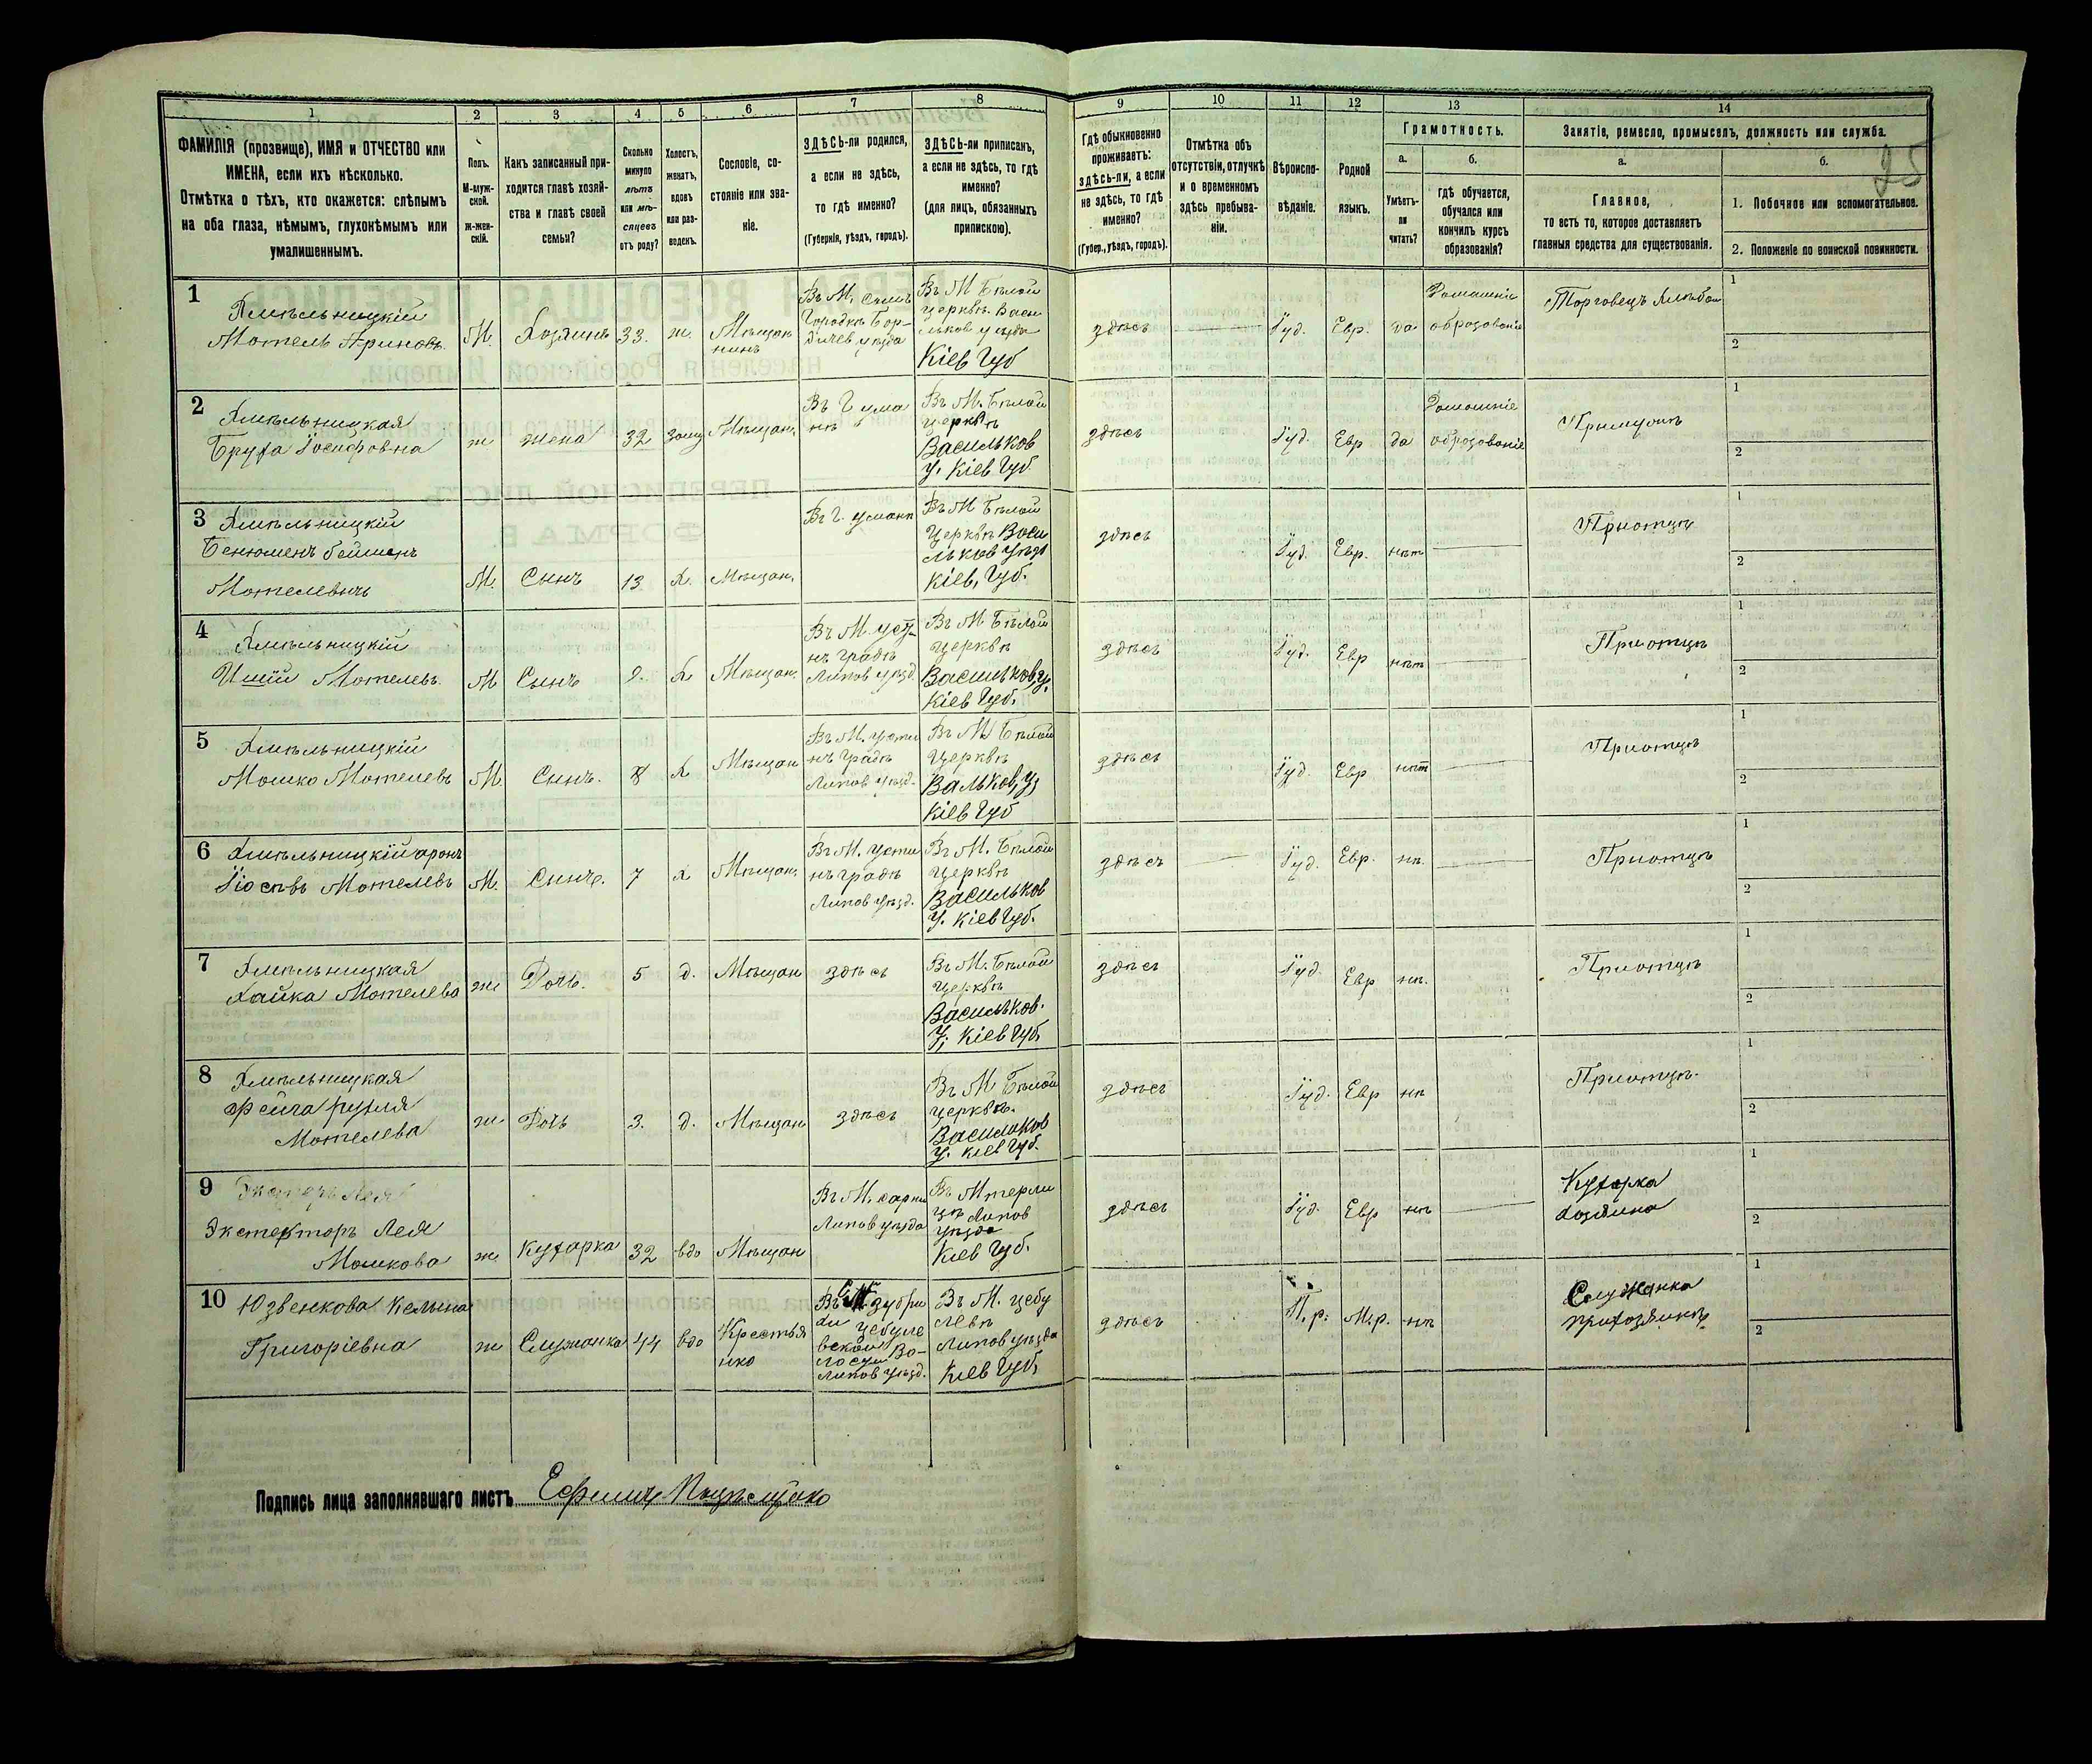 1 2 3 4 5 6 7 8 9 10 11 12 13 14
ФАМИЛІЯ (прозвище), ИМЯ и ОТЧЕСТВО или
ИМЕНА, если ихъ нѣсколько.
Отмѣтка о тѣхъ, кто окажется: слѣпымъ
на оба глаза, нѣмымъ, глухонѣмымъ или
умалишеннымъ.
Полъ.
М-муж-
ской.
Ж-жен-
скій.
Какъ записанный при-
ходится главѣ хозяй-
ства и главѣ своей
семьи?
Сколько
минуло
лѣтъ
или мѣ-
сяцевъ
отъ роду?
Холостъ,
женатъ,
вдовъ
или раз-
веденъ.
Сословіе, со-
стояніе или зва-
ніе.
ЗДѢСЬ-ли родился,
а если не здѣсь,
то гдѣ именно?
(Губернія, уѣздъ, городъ).
ЗДѢСЬ-ли приписанъ,
а если не здѣсь, то гдѣ
именно?
(для лицъ, обязанныхъ
припискою).
Гдѣ обыкновенно
проживаетъ:
здѣсь-ли, а если
не здѣсь, то гдѣ
именно?
(Губер., уѣздъ, городъ).
Отмѣтка объ
отсутствіи, отлучкѣ
и о временномъ
здѣсь пребыва-
ніи.
Вѣроиспо-
вѣданіе.
Родной
языкъ.
Грамотность.
а.
Умѣетъ-
ли
читать?
б.
гдѣ обучается,
обучался или
кончилъ курсъ
образованія?
Занятіе, ремесло, промыселъ, должность или служба.
а.
Главное,
то есть то, которое доставляетъ
главныя средства для существованія.
б.
1. Побочное или вспомогательное.
2. Положеніе по воинской повинности.
25
1
Хмѣльницкій
Мотель Ариновъ
М.
Хозяинъ
33.
ж.
Мѣщан
нинъ
Городкѣ Бер-
дичев уѣзда
Въ М Бѣлой
Церквѣ Васи
льков уѣзда
Кіев Губ
здѣсь
Іуд.
Евр.
да
Домашніе
образованіе
Торговецъ
1
2
2
Хмѣльницкая
Бруха Іосифовна
ж
жена
32
Мѣщан.
Въ Г ума
нѣ
Въ М. Бѣлой
Церквѣ
Васильков
у. Кіев Губ
здѣсь
Іуд.
Евр
да
Домашніе
образованіе
При мужѣ
1
2
3
Хмѣльницкій
Мотелевичъ
М.
Сынъ
13
х.
Мѣщан.
Въ Г. уманѣ
Въ М Бѣлой
Церквѣ Васи
льков уѣзд
Кіев, Губ.
здѣсь
Іуд.
Евр.
нѣт
При отцѣ
1
2
4
Хмѣльницкій
Мотелевъ.
М
Сынъ
9.
х
Мѣщан.
Въ М. усти
нъ Градѣ
Липов уѣзд.
Въ М Бѣлой
Церквѣ
Васильков, у,
Кіев Губ.
здѣсь
Іуд.
Евр
нѣт
При отцѣ
1
2
5
Хмѣльницкій
Мошко Мотелевъ
М.
Сынъ.
8
х
Мѣщан
Въ М. усти
нъ Градѣ
Липов уѣзд.
Въ М. Бѣлой
Церквѣ
Вальков, у,
Кіев Губ
здѣсь
Іуд.
Евр
нѣт
При отцѣ
1
2
6
Хмѣльницкій аронъ
Іосевъ Мотелевъ
М.
Сынъ.
7
х
Мѣщан.
Въ М. усти
нъ градѣ
Липов уѣзд.
Въ М. Бѣлой
Церквѣ
Васильков
у. Кіев Губ.
здѣсь
Іуд.
Евр.
нѣ.
При отцѣ
1
2
7
Хмѣльницкая
Хайка Мотелева
ж
Дочь.
5
д.
Мѣщан
здѣсь
Въ М. Бѣлой
Церквѣ
Васильков.
у, Кіев Губ.
здѣсь
Іуд.
Евр
нѣ.
При отцѣ
1
2
8
Хмѣльницкая
Фейга рухля
Мотелева
ж
Дочь
3.
д.
Мѣщан
здѣсь
Въ М. Бѣлой
Церквѣ.
Васильков
у. Кіев Губ.
здѣсь
Іуд.
Евр
нѣ
При отцѣ.
1
2
9
Экстекторъ Лея
Мошкова
ж.
Кухарка
32
вдо
Мѣщан
Въ М. сарны
Липов уѣзда
Въ М терли
цѣ Липов
уѣзда
Кіев Губ.
здѣсь
Іуд.
Евр
нѣ
Кухарка
хозяина
1
2
10
Юзвенкова
Григоріевна
ж
Служанка
44
вдо
Крестья
нка
Липов уѣзд.
Въ М. цебу
левѣ
Липов уѣзда
Кіев Губ,
здѣсь
П. р.
М. р.
нѣ
Служанка
1
2
Подпись лица заполнявшаго листъ